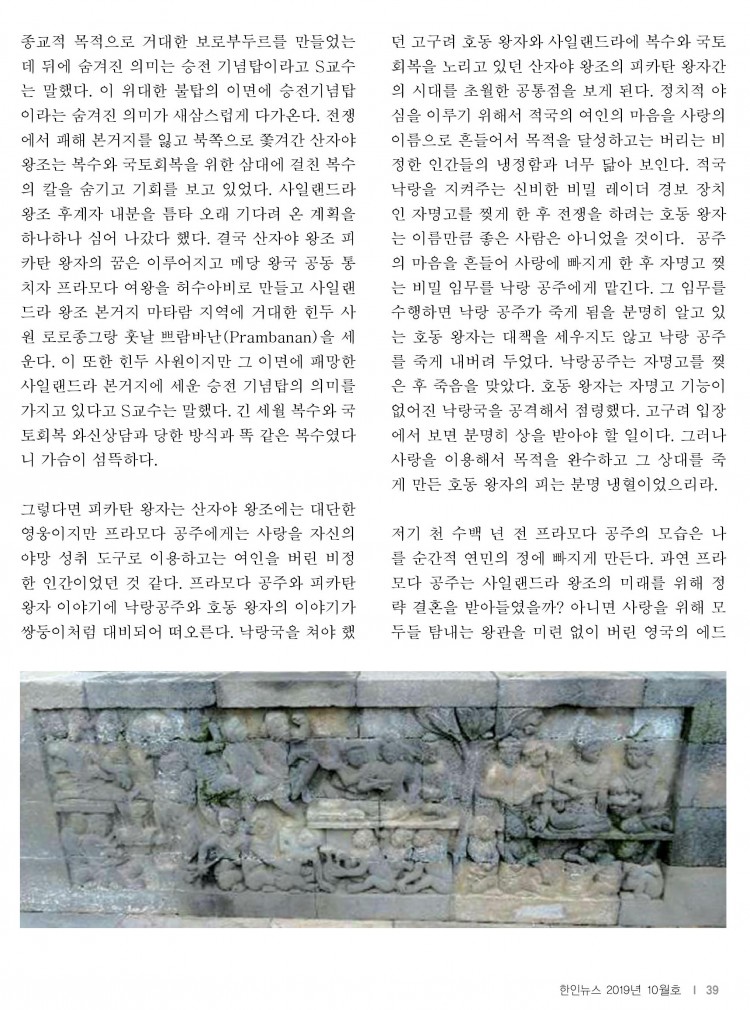 종교적 목적으로 거대한 보로부두르를 만들었는
데 뒤에 숨겨진 의미는 승전 기념탑이라고 S교수
는 말했다. 이 위대한 불탑의 이면에 승전기념탑
이라는 숨겨진 의미가 새삼스럽게 다가온다. 전쟁
에서 패해 본거지를 잃고 북쪽으로 쫓겨간 산자야
왕조는 복수와 국토회복을 위한 삼대에 걸친 복수
의 칼을 숨기고 기회를 보고 있었다. 사일랜드라
왕조 후계자 내분을 틈타 오래 기다려 온 계획을
하나하나 심어 나갔다 했다. 결국 산자야 왕조 피
카탄 왕자의 꿈은 이루어지고 메당 왕국 공동 통
치자 프라모다 여왕을 허수아비로 만들고 사일랜
드라 왕조 본거지 마타람 지역에 거대한 힌두 사
원 로로종그랑 훗날 쁘람바난(Prambanan)을 세
운다. 이 또한 힌두 사원이지만 그 이면에 패망한
사일랜드라 본거지에 세운 승전 기념탑의 의미를
가지고 있다고 S교수는 말했다. 긴 세월 복수와 국
토회복 와신상담과 당한 방식과 똑 같은 복수였다
니 가슴이 섬뜩하다.
그렇다면 피카탄 왕자는 산자야 왕조에는 대단한
영웅이지만 프라모다 공주에게는 사랑을 자신의
야망 성취 도구로 이용하고는 여인을 버린 비정
한 인간이었던 것 같다. 프라모다 공주와 피카탄
왕자 이야기에 낙랑공주와 호동 왕자의 이야기가
쌍둥이처럼 대비되어 떠오른다. 낙랑국을 쳐야 했
던 고구려 호동 왕자와 사일랜드라에 복수와 국토
회복을 노리고 있던 산자야 왕조의 피카탄 왕자간
의 시대를 초월한 공통점을 보게 된다. 정치적 야
심을 이루기 위해서 적국의 여인의 마음을 사랑의
이름으로 흔들어서 목적을 달성하고는 버리는 비
정한 인간들의 냉정함과 너무 닮아 보인다. 적국
낙랑을 지켜주는 신비한 비밀 레이더 경보 장치
인 자명고를 찢게 한 후 전쟁을 하려는 호동 왕자
는 이름만큼 좋은 사람은 아니었을 것이다. 공주
의 마음을 흔들어 사랑에 빠지게 한 후 자명고 찢
는 비밀 임무를 낙랑 공주에게 맡긴다. 그 임무를
수행하면 낙랑 공주가 죽게 됨을 분명히 알고 있
는 호동 왕자는 대책을 세우지도 않고 낙랑 공주
를 죽게 내버려 두었다. 낙랑공주는 자명고를 찢
은 후 죽음을 맞았다. 호동 왕자는 자명고 기능이
없어진 낙랑국을 공격해서 점령했다. 고구려 입장
에서 보면 분명히 상을 받아야 할 일이다. 그러나
사랑을 이용해서 목적을 완수하고 그 상대를 죽
게 만든 호동 왕자의 피는 분명 냉혈이었으리라.
저기 천 수백 년 전 프라모다 공주의 모습은 나
를 순간적 연민의 정에 빠지게 만든다. 과연 프라
모다 공주는 사일랜드라 왕조의 미래를 위해 정
략 결혼을 받아들였을까? 아니면 사랑을 위해 모
두들 탐내는 왕관을 미련 없이 버린 영국의 에드
한인뉴스 2019년 10월호 ㅣ 39